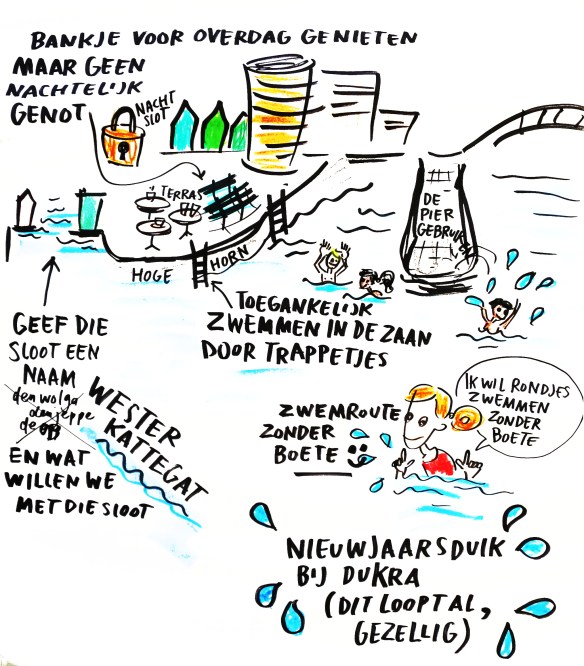 BANKJE VOOR OVERDAG GENIETEN
MAAR GEEN
NACHTELIJK
GENOT
NACHT
SLOT
TERRAS
DE
PIER
GEBRUIKEN
HOGE
HORN
TOEGANKELIJK
ZWEMMEN IN DE ZAAN
DOOR TRAPPETJES
GEEF DIE
SLOOT EEN
NAAM
den wolga
den jeppe
de
WESTER
KATTEGAT
EN WAT
WILLEN WE
MET DIE SLOOT
ZWEMROUTE
ZONDER
BOETE
IK WIL RONDJES
ZWEMMEN
ZONDER
BOETE
NIEUWJAARSDUIK
BIJ DUKRA
(DIT LOOPT AL,
GEZELLIG)